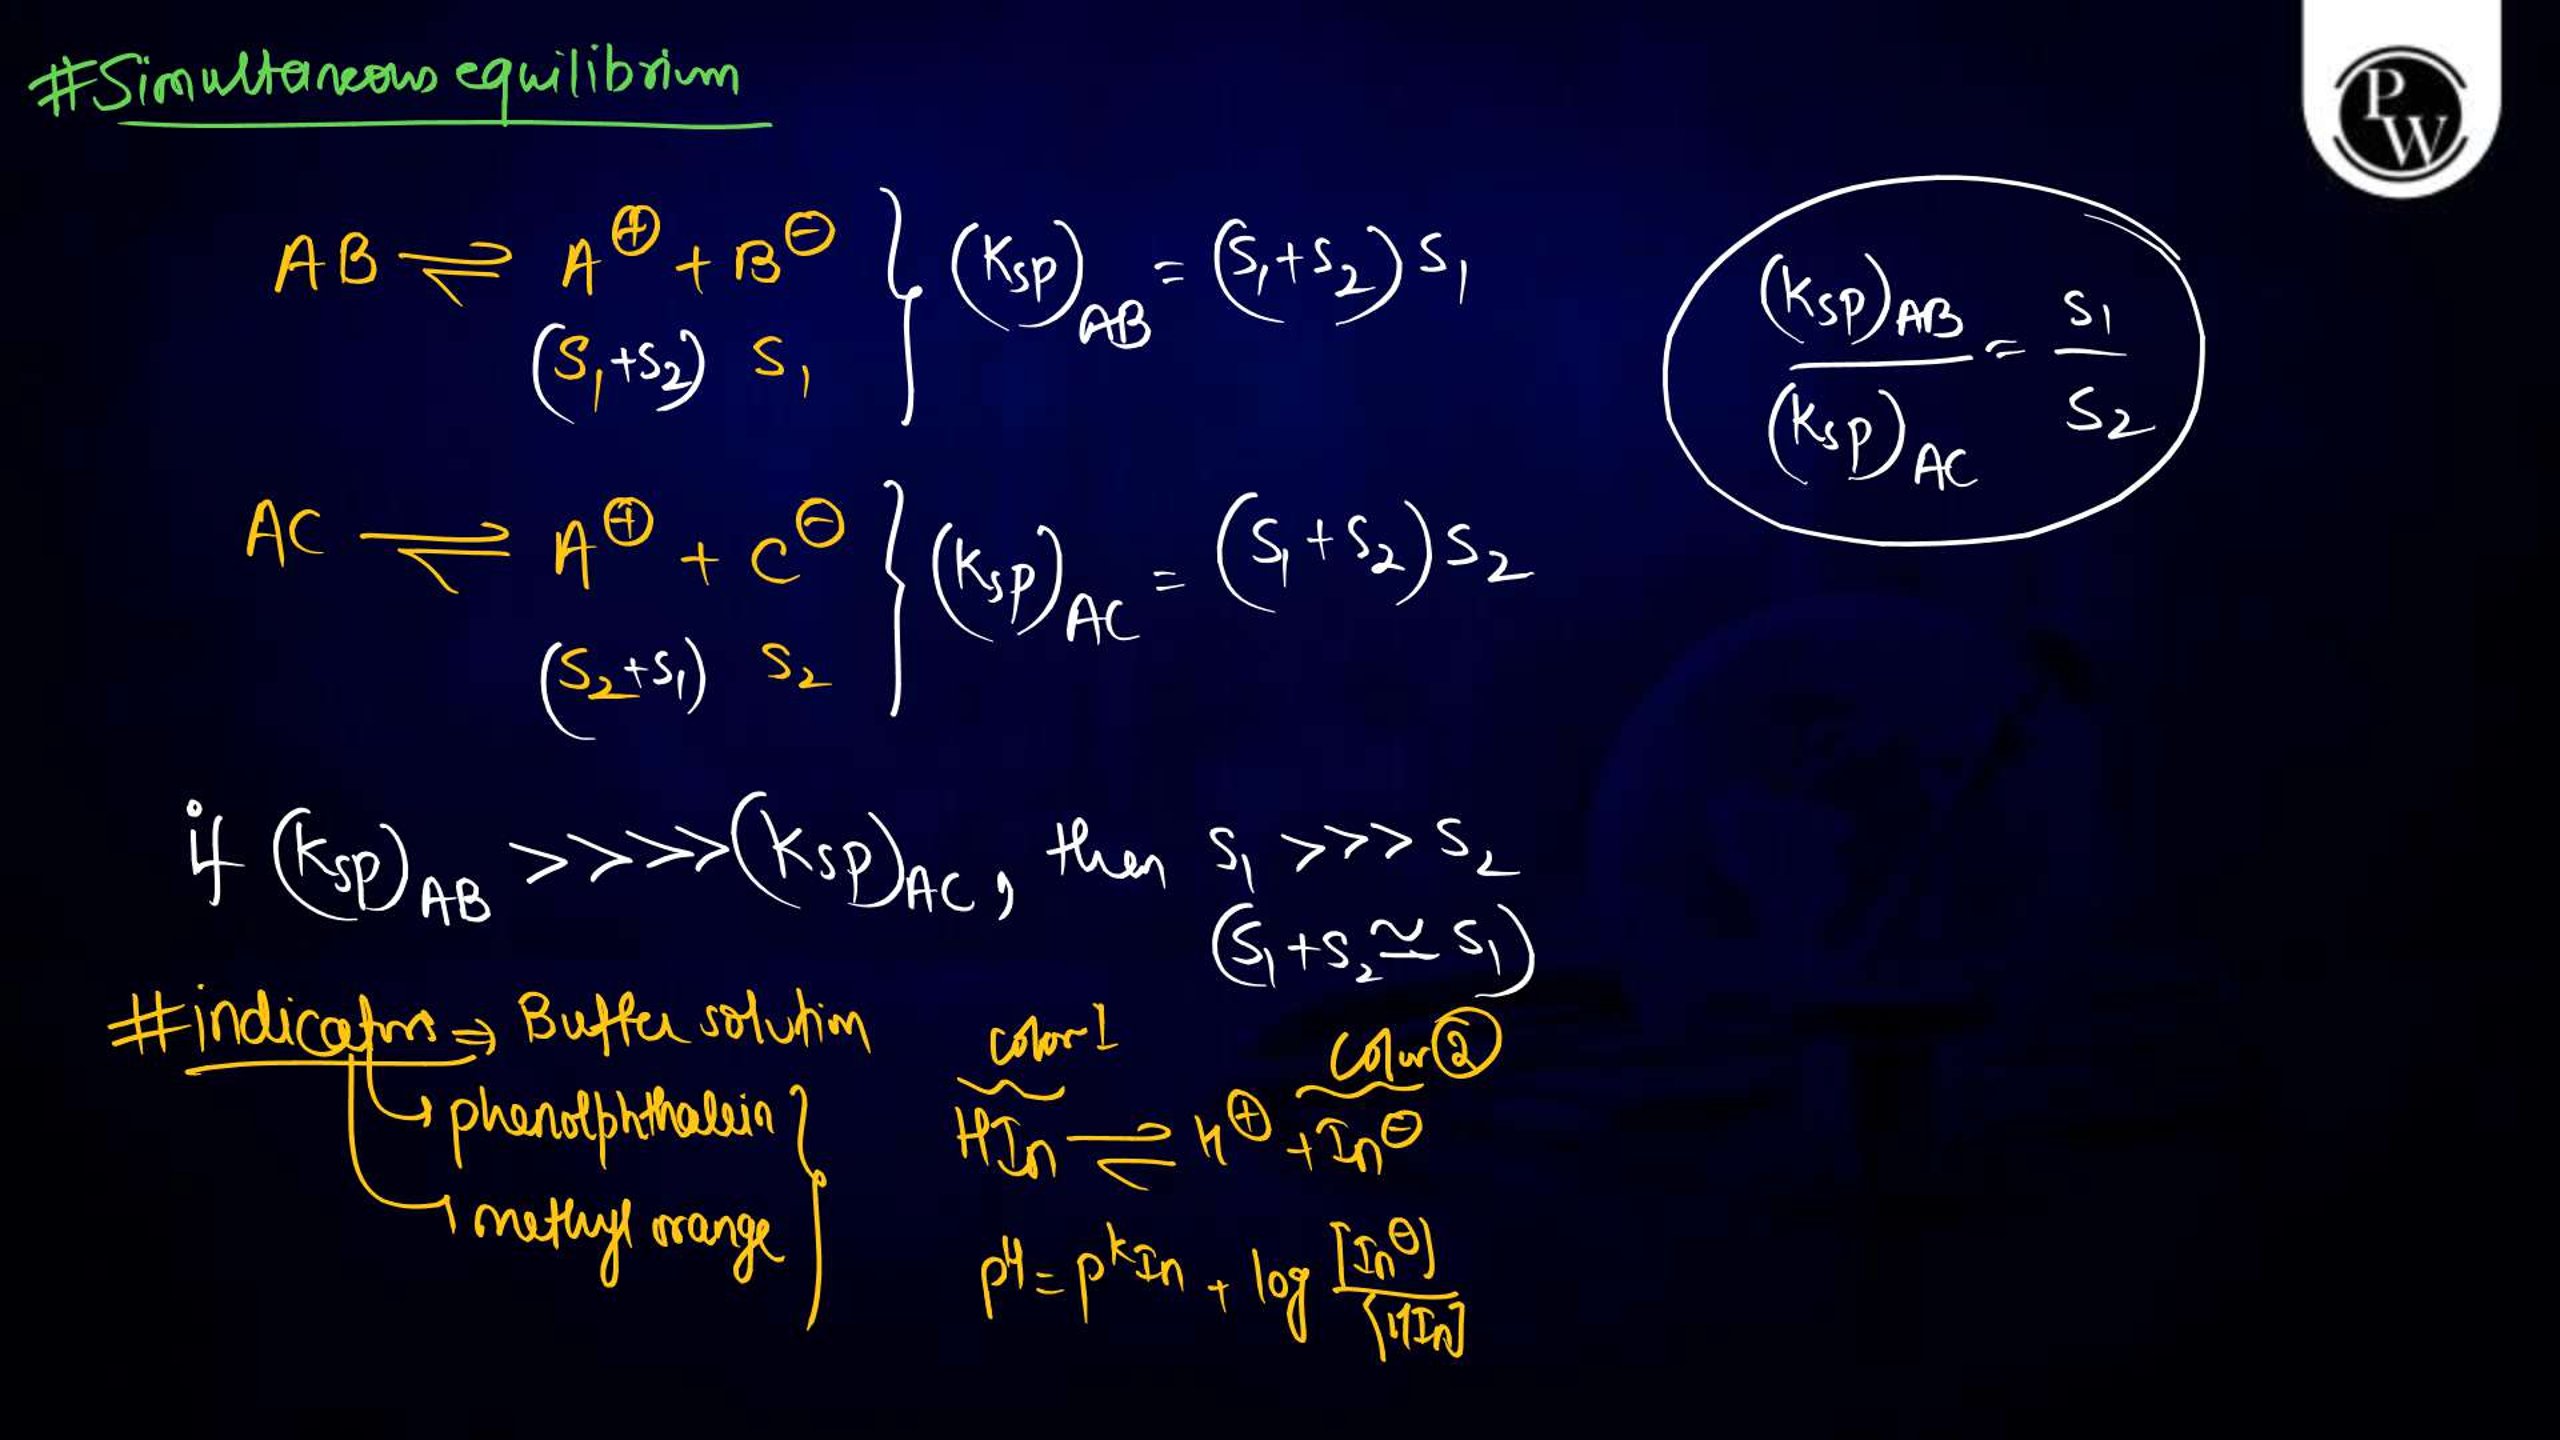 #Simultaneous equilibrium
PW
AB ⇌ A⊕ + B⊖ } (Ksp)AB = (S1+S2) S1
(S1+S2) S1
(Ksp)AB / (Ksp)AC = S1 / S2
AC ⇌ A⊕ + C⊖ } (Ksp)AC = (S1+S2) S2
(S2+S1) S2
if (Ksp)AB >>>>> (Ksp)AC, then S1 >>> S2
(S1+S2 ≃ S1)
#indicators ⇒ Buffer solution
→ phenolphthalein
→ methyl orange
color 1 Color ②
HIn ⇌ H⊕ + In⊖
pH = pKIn + log [In⊖] / [HIn]